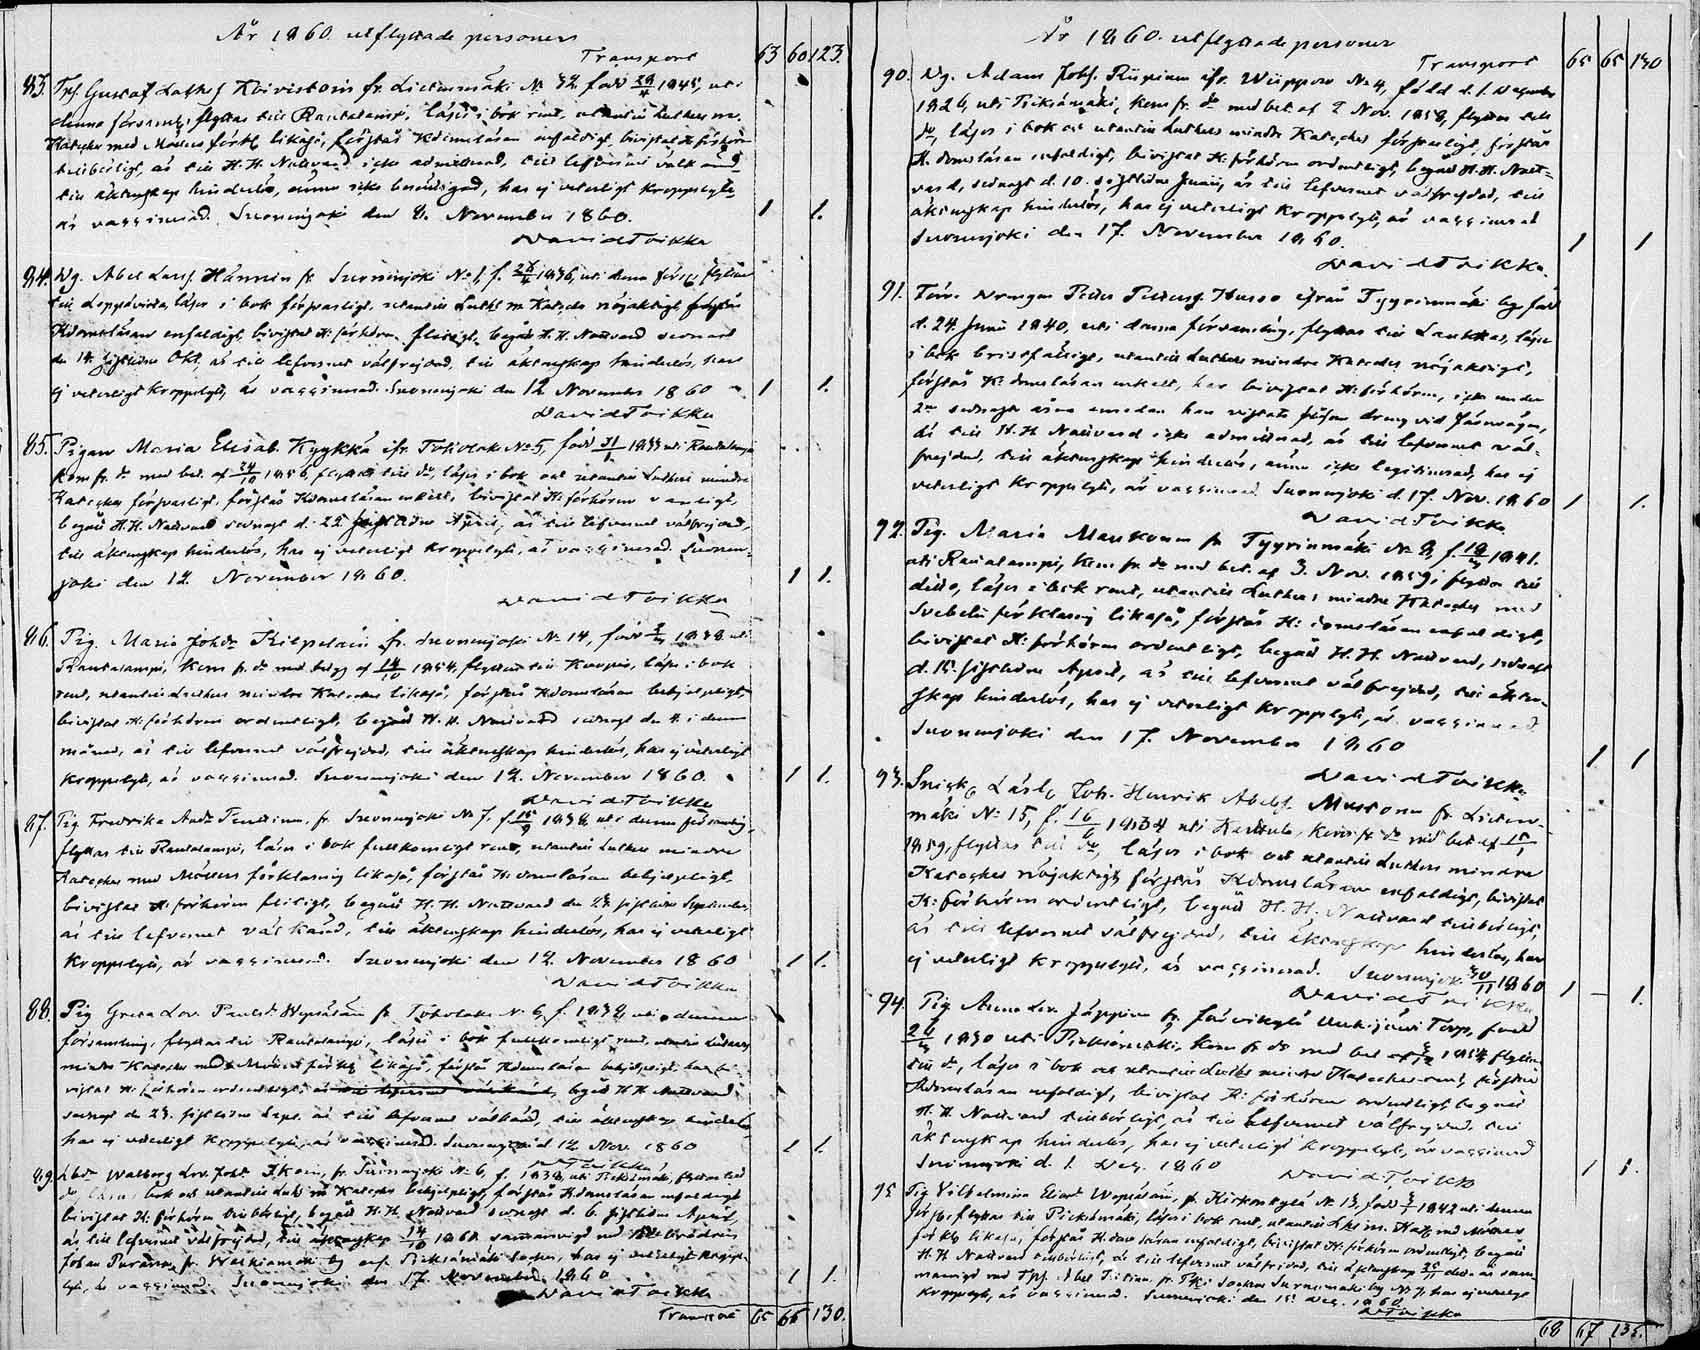 År 1860. utflyttade personer
Transport 63 60 123.
83. Tpf. Gustaf Koivistoin fr. Lietenmäki No 32 född 1845, uti
denna församl., flyttas till Rautalampi, läser i bok rent, utantill Luthers m.
Kateches med likaså, förstår Kdomsläran enfaldigt, bivistat
är till H. H. Nattvard icke admitterad, till lefvernet
till äktenskap hinderlös, ännu icke har ej veterligt kroppslyte,
är vaccinerad. Suonenjoki den 8. November 1860. 1 1.
David Toikka
84. Dg. Abel Larsf. Hänninen fr Suonenjoki No 1, f. 1836, uti denna förs., flyttar
till Leppävirta, läser i bok försvarligt, utantill Luths m. Kateches nöjaktigt förstår
Kdomsläran enfaldigt, bivistat K: förhören flitigt, begått H. H. Nattvard senast
den 14. sistlidne Okt, är till lefvernet välfrejdad, till äktenskap hinderlös, har
ej veterligt kroppslyte, är vaccinerad. Suonenjoki den 12 November 1860 1 1.
David Toikka
85. Pigan Maria Elisab. Kyykkä ifr. Toholaks No 5, född 1833 uti Rautalampi
kom fr. do med bet. af 1856, flyttar till do, läser i bok och utantill Luthers mindre
Kateches försvarligt, förstår Kdomsläran enkelt, bivistat K: förhören vanligt,
begått H. H. Nattvard senast d. 22 sistlidne April, är till lefvernet välfrejdad,
till äktenskap hinderlös, har ej veterligt kroppslyte, är vaccinerad. Suonen-
joki den 12. November 1860. 1 1.
David Toikka
86. Pig. Maria Johdr Kilpeläin fr. Suonenjoki No 14, född 1838 uti
Rautalampi, kom fr. do med af 1854, flyttar till Kuopio, läser i bok
rent, utantill Luthers mindre Kateches likaså, förstår Kdomsläran behjelpligt,
bivistat K: förhören ordentligt, begått H. H. Nattvard senast den 4 i denna
månad, är till lefvernet välfrejdad, till äktenskap hinderlös, har ej veterligt
kroppslyte, är vaccinerad. Suonenjoki den 12. November 1860. 1 1.
David Toikka
87. Pig. Fredrika fr. Suonenjoki No 7, f. 1838 uti denna församling,
flyttas till Rautalampi, läser i bok fullkomligt rent, utantill Luthers mindre
Kateches med förklaring likaså, förstår K: domsläran behjelpligt,
bivistat K: förhören flitigt, begått H. H. Nattvard den 23 sistlidne September,
är till lefvernet väl känd, till äktenskap hinderlös, har ej veterligt
kroppslyte, är vaccinerad. Suonenjoki den 12. November 1860 1 1.
David Toikka
88. Pig Greta Lov. Paulsdr Vepsäläin fr Toholaks No 6, f. 1838 uti denna
församling, flyttar till Rautalampi, läser i bok fullkomligt rent, utantill Luthers
mindre Kateches med likaså, förstår Kdomsläran behjelpligt, har bi-
vistat K: förhören ordentligt, begått H. H. Nattvard
senast den 23. sistlidne Sept. är till lefvernet väl känd, till äktenskap hinderlös,
har ej veterligt kroppslyte, är vaccinerad. Suonenjoki d. 12 Nov. 1860 1 1.
DToikka
89. Walborg Lov. Johdr fr. Suonenjoki No 6, f. 1838, uti Pieksämäki, flyttar till
do, läser i bok och utantill Luths m Kateches behjelpligt, förstår Kdomsläran enfaldigt
bivistat K: förhören, begått H. H. Nattvard senast d. 6. sistlidne April,
är till lefvernet välfrejdad, till äktenskap 1860 med
Johan Puranen fr. Pieksämäki socken, har ej veterligt kropps-
lyte, är vaccinerad. Suonenjoki den 17. November 1860. 1 1.
David Toikka
Transport 65 65 130.
År 1860. utflyttade personer
Transport 65 65 130
90. Dg. Adam Johs. Riipinen ifr. Wiippero No 4, född d. 1. December
1826, uti Pieksämäki, kom fr. do med bet. af 2 Nov. 1858, flyttar till
do, läser i bok och utantill Luthers mindre Kateches försvarligt, förstår
K. domsläran enfaldigt, bivistat K: förhören ordentligt, begått H. H. Natt-
vard, senast d. 10. sistlidne Junii, är till lefvernet välfrejdad, till
äktenskap hinderlös, har ej veterligt kroppslyte, är vaccinerad
Suonenjoki den 17. November 1860. 1 1
David Toikka.
91. Förre Drengen Petter Pettersf. Husso ifrån Tyyrinmäki by, född
d. 24. Junii 1840, uti denna församling, flyttas till Laukkas, läser
i bok bristfälligt, utantill Luthers mindre Kateches nöjaktigt,
förstår K: domsläran enkelt, har bivistat K: förhören, icke under
2ne senaste åren emedan han vistats såsom dreng vid Jernvägen,
är till H. H. Nattvard icke admitterad, är till lefvernet väl-
frejdad, till äktenskap hinderlös, ännu icke legitimerad, har ej
veterligt kroppslyte, är vaccinerad. Suonenjoki d. 17. Nov. 1860 1 1.
David Toikka
92. Pig. Maria Maukonen fr Tyyrinmäki No 8, f. 1841.
uti Rautalampi, kom fr. do med bet. af 3. Nov. 1859, flyttar till
ditto, läser i bok rent, utantill Luthers mindre Kateches med
Svebelii förklaring likaså, förstår K: domsläran enfaldigt,
bivistat K: förhören ordentligt, begått H. H. Nattvard, senast
d. 15. sistlidne April, är till lefvernet välfrejdad, till äkten-
skap hinderlös, har ej veterligt kroppslyte, är vaccinerad
Suonenjoki den 17. November 1860 1 1
David Toikka
93. Joh. Henrik Abelsf. Mustonen fr. Lieten-
mäki No 15, f. 1834 uti Karttula, kom fr do med bet. af
1859, flyttas till do, läser i bok och utantill Luthers mindre
Kateches nöjaktigt, förstår Kdomsläran enfaldigt, bivistat
K: förhören ordentligt, begått H. H. Nattvard tillbörligt,
är till lefvernet välfrejdad, till äktenskap hinderlös, har
ej veterligt kroppslyte, är vaccinerad. Suonenjoki 30/11 1860 1 – 1.
David Toikka
94. Pig Anna Lov. Jäppinen fr. Torp, född
1830 uti Pieksämäki, kom fr do med bet af 1854 flyttar
till do, läser i bok och utantill Luths mindre Kateches rent, förstår
Kdomsläran enfaldigt, bivistat K: förhören ordentligt, begått
H. H. Nattvard tillbörligt, är till lefvernet välfrejdad, till
äktenskap hinderlös, har ej veterligt kroppslyte, är vaccinerad
Suonenjoki d. 1. Dec. 1860 1 1.
David Toikka
95 Pig Vilhelmina Eliasdr Vepsäläin, fr Kirkonkylä No 13, född 1842 uti denna
förs., flyttas till Pieksämäki, läser i bok rent, utantill Luths m. Kat. med
förkl. likaså, förstår K: domsläran enfaldigt, bivistat K: förhören ordentligt, begått
H. H. Nattvard tillbörligt, är till lefvernet välfrejdad, till äktenskap
med Abel fr. socken No 7, har ej veterligt
kroppslyte, är vaccinerad. Suonenjoki den 15. Dec. 1860.
DToikka
68 67 135.